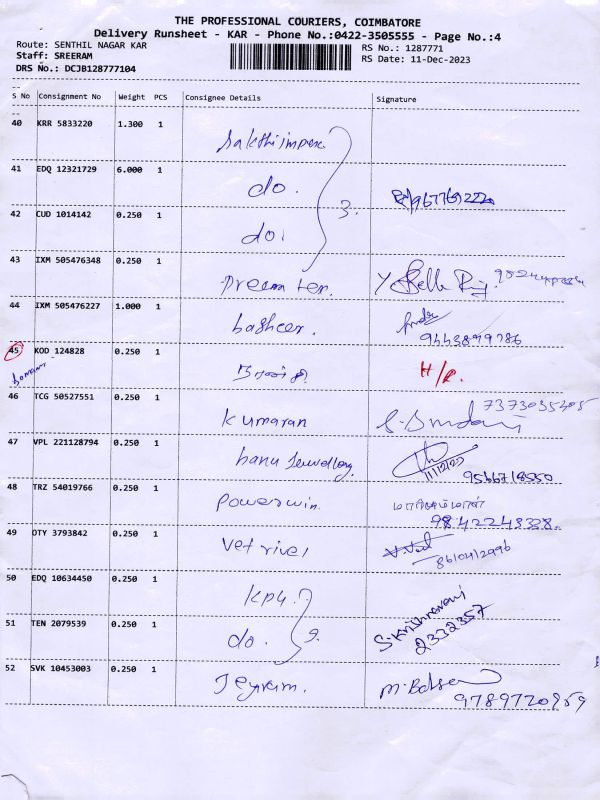 THE PROFESSIONAL COURIERS, COIMBATORE
Delivery Runsheet - KAR - Phone No.:0422-3505555 - Page No.:4
Route: SENTHIL NAGAR KAR
RS No.: 1287771
Staff: SREERAM
RS Date: 11-Dec-2023
DRS No.: DCJB128777104
S No Consignment No Weight PCS Consignee Details Signature
40 KRR 5833220 1.300 1 Sakthi impex
41 EDQ 12321729 6.000 1 do. 3. 9677692220
42 CUD 1014142 0.250 1 do.
43 IXM 505476348 0.250 1 Dream ter.
44 IXM 505476227 1.000 1 basheer. 9443899786
45 KOD 124828 0.250 1 H/R.
46 TCG 50527551 0.250 1 Kumaran 7373035205
47 VPL 221128794 0.250 1 banu 11/12/23 9566718550
48 TRZ 54019766 0.250 1 Powerwin. 9842248328.
49 OTY 3793842 0.250 1 Vetrivel 8610412996
50 EDQ 10634450 0.250 1 kpy.
51 TEN 2079539 0.250 1 do. 2. S.Krishnaveni
2332357
52 SVK 10453003 0.250 1 Jeyram. 9789720959